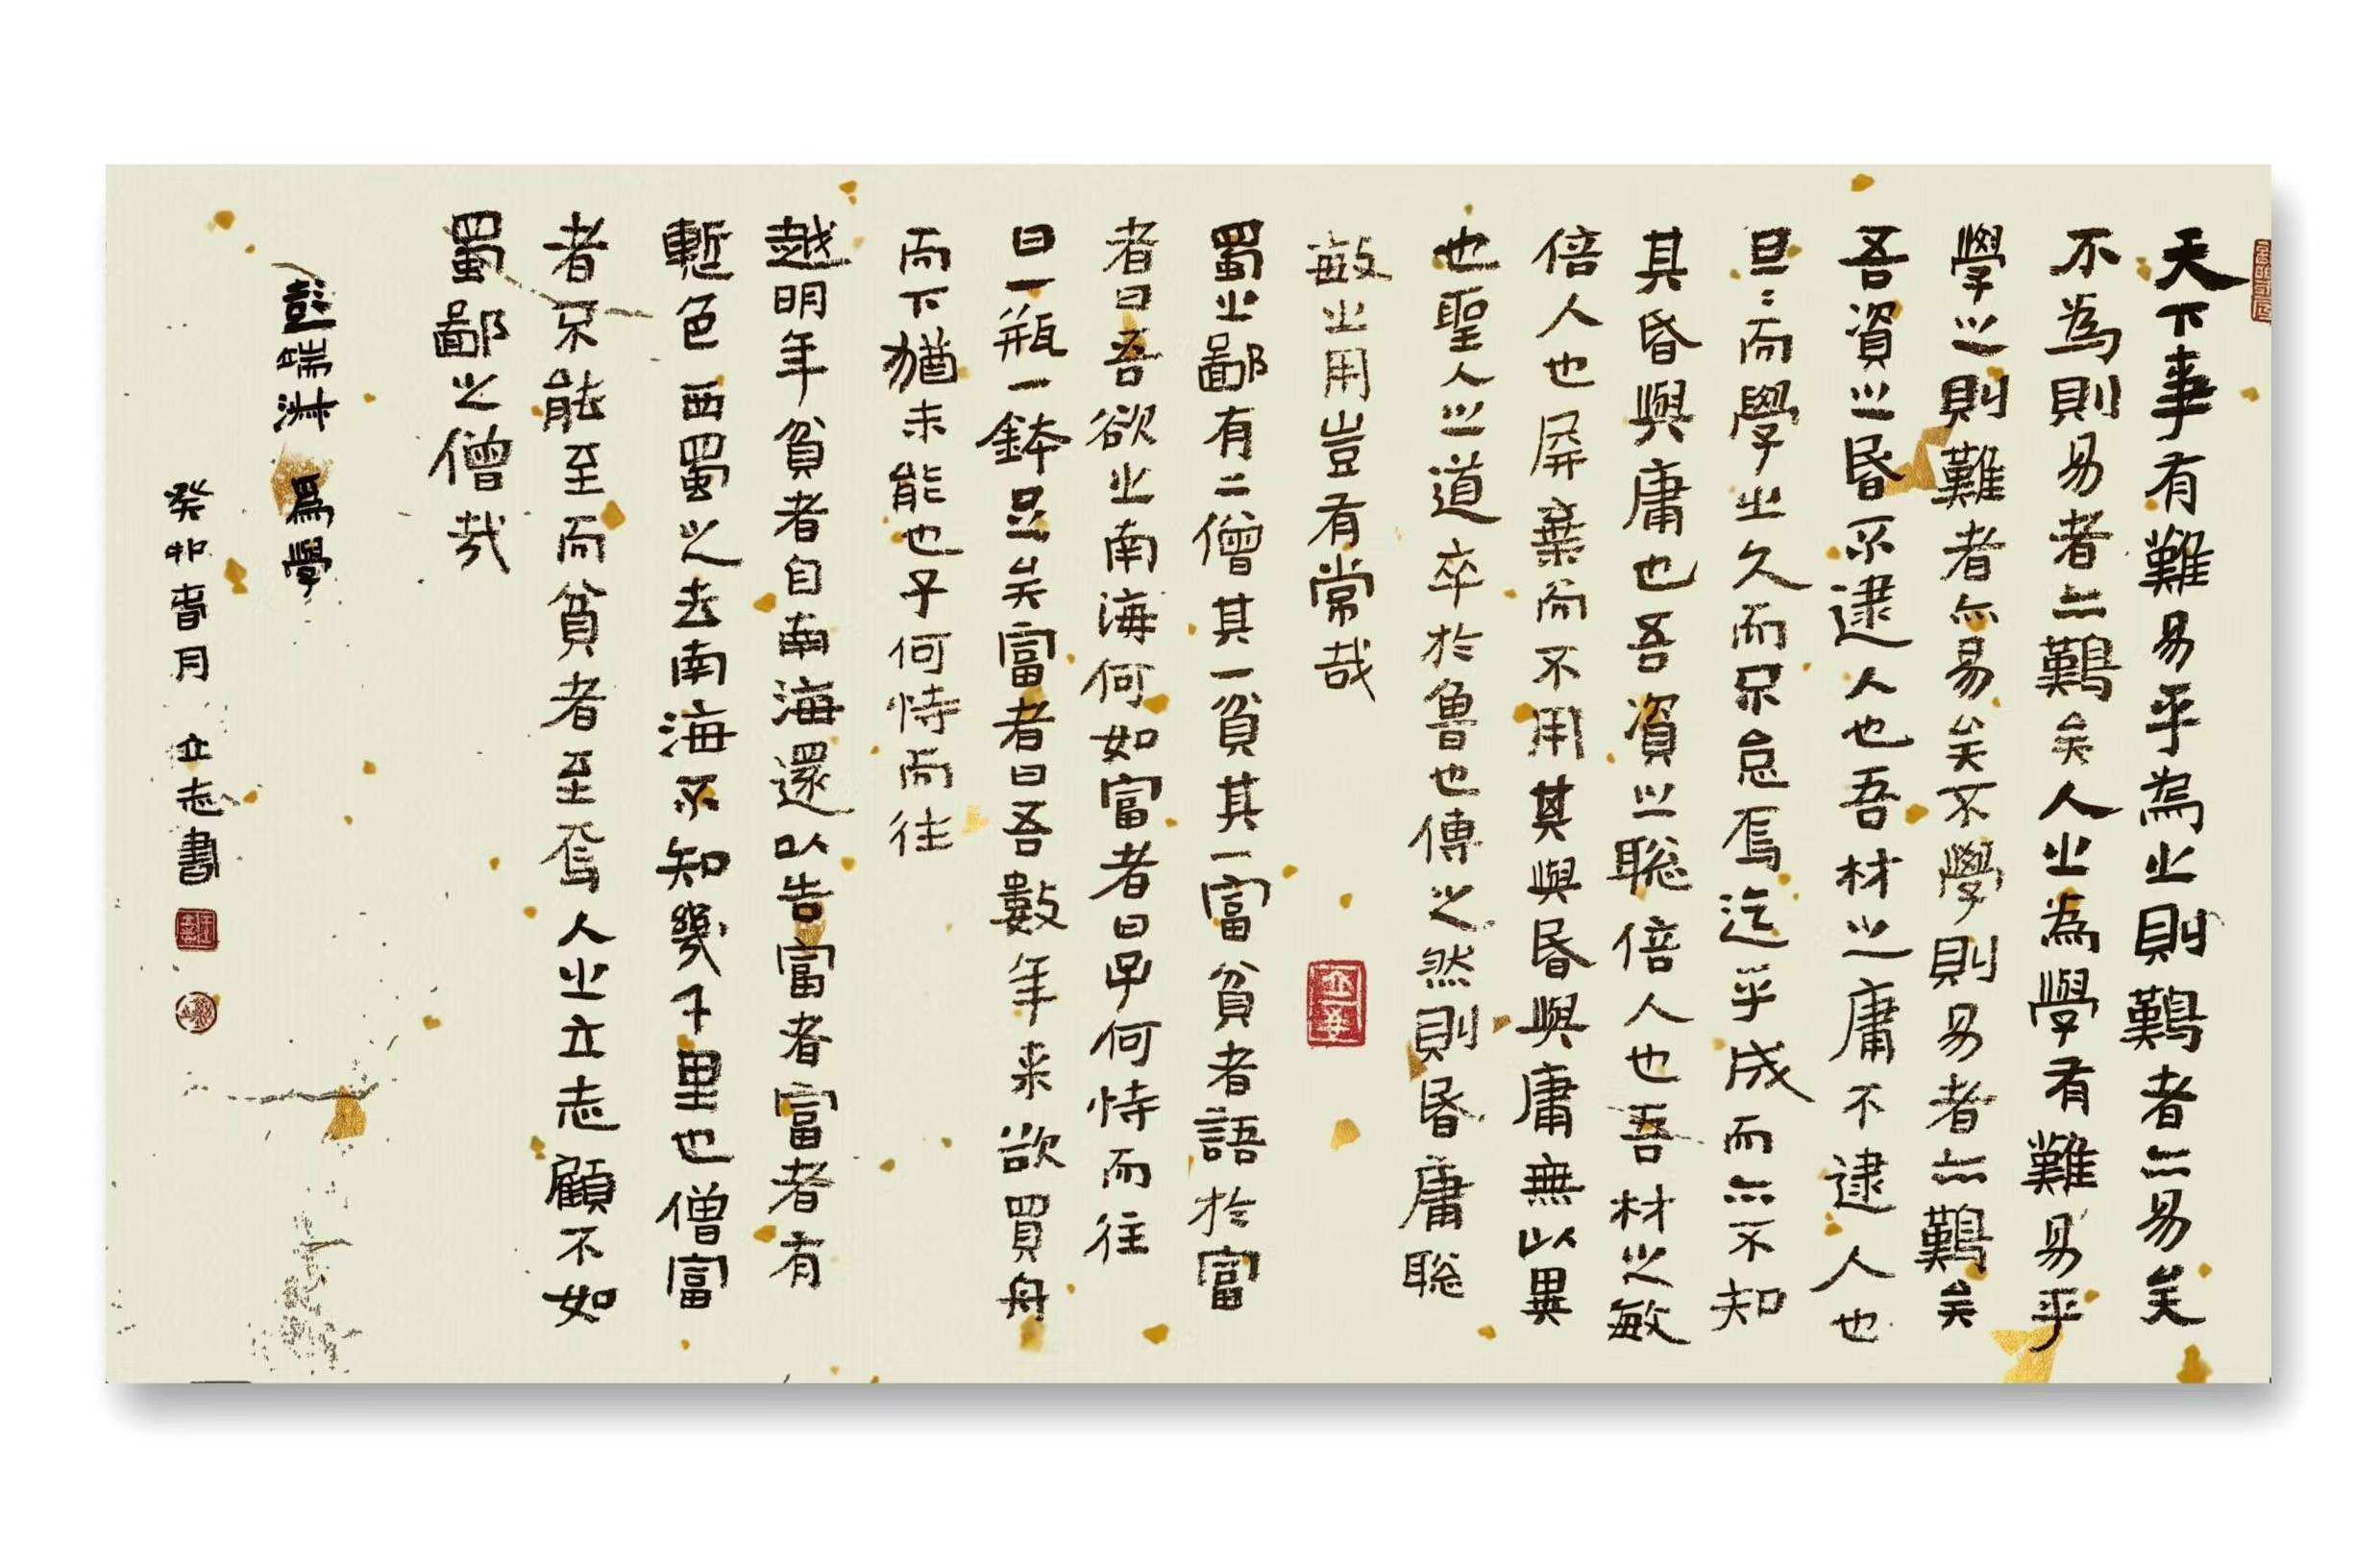 天下事有難易乎為之則難者亦易矣
不為則易者亦難矣人之為學有難易乎
學之則難者亦易矣不學則易者亦難矣
吾資之昏不逮人也吾材之庸不逮人也
旦〻而學之久而不怠焉迄乎成而亦不知
其昏與庸也吾資之聰倍人也吾材之敏
倍人也屏棄而不用其與昏與庸無以異
也聖人之道卒於魯也傳之然則昏庸聰
敏之用豈有常哉
蜀之鄙有二僧其一貧其一富貧者語於富
者曰吾欲之南海何如富者曰子何恃而往
曰一瓶一鉢足矣富者曰吾數年來欲買舟
而下猶未能也子何恃而往
越明年貧者自南海還以告富者富者有
慙色西蜀之去南海不知幾千里也僧富
者不能至而貧者至焉人之立志顧不如
蜀鄙之僧哉
彭端淑 為學
癸卯春月 立志書